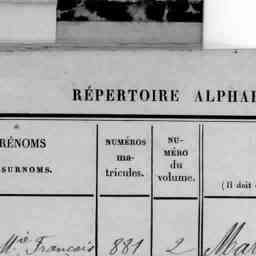 RÉPERTOIRE ALPHA
RÉNOMS
SURNOMS.
NUMÉROS
ma-
tricules.
NU-
MÉRO
du
volume.
(Il doit
Mie Francois 881 2 Mar